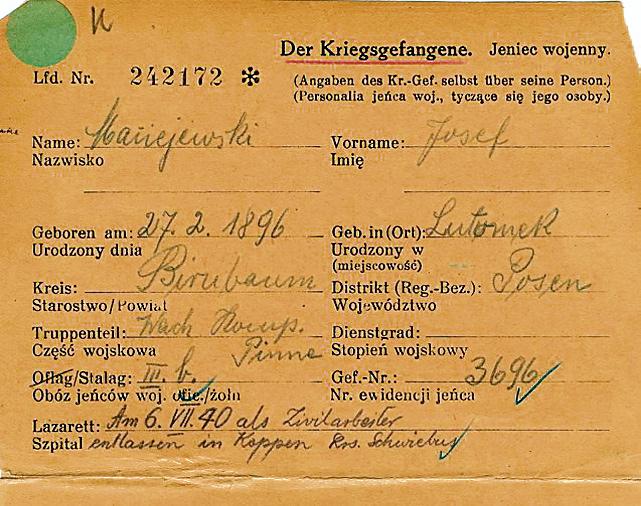 Der Kriegsgefangene. Jeniec wojenny.
Lfd. Nr. 242172 *
(Angaben des Kr.-Gef. selbst über seine Person.)
(Personalia jeńca woj., tyczące się jego osoby.)
Name: Maciejewski Vorname: Josef
Nazwisko Imię
Geboren am: 27.2.1896 Geb. in (Ort): Lutomek
Urodzony dnia Urodzony w
(miejscowość)
Kreis: Birnbaum Distrikt (Reg.-Bez.): Posen
Starostwo/Powiat Województwo
Truppenteil: Wach Komp. Dienstgrad:
Część wojskowa Pinne Stopień wojskowy
Oflag/Stalag: III. b. Gef.-Nr.: 3696
Obóz jeńców woj. ofic./żołn Nr. ewidencji jeńca
Lazarett: Am 6. VII. 40 als Zivilarbeiter
Szpital entlassen in Koppen Krs. Schwiebus